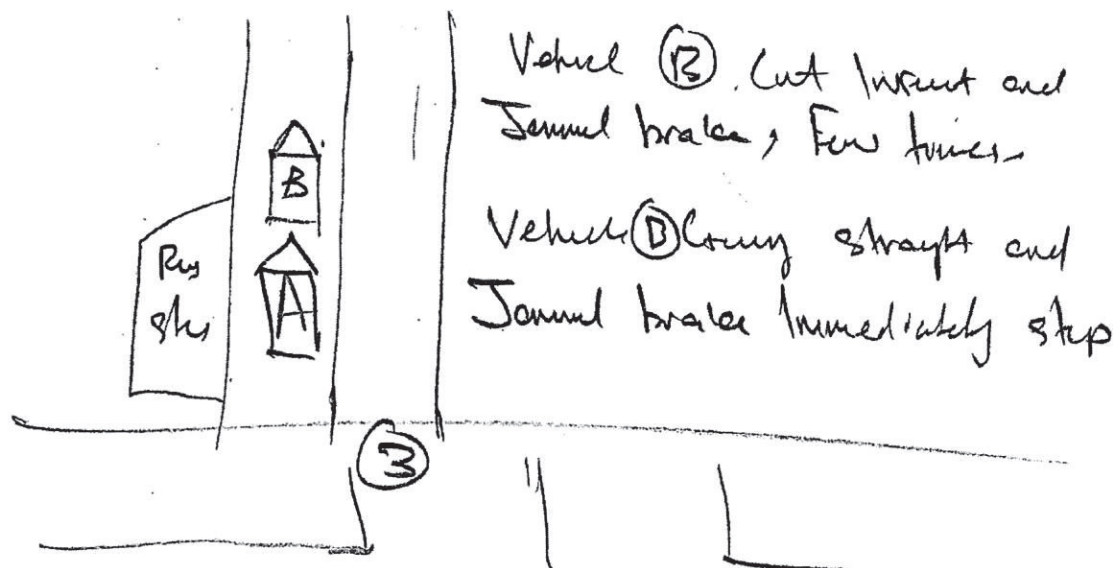 Vehicle B. Cut Infront and
Jammed brake, Few times
Vehicle B Going straight and
Jammed brake Immediately stop
B
A
Bus
stop
3